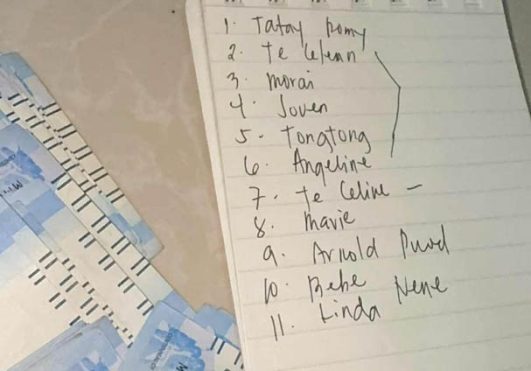 1. Tatay Romy
2. Te Lelenn
3. Morai
4. Joven
5. Tongtong
6. Angeline
7. Te Celine -
8. Mavie
9. Arnold
10. Bebe Nene
11. Linda